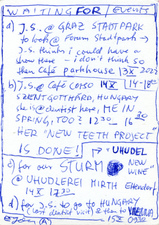 WAITING FOR / EVENT
a) J.S. @ GRAZ STADTPARK
to look @ Forum Stadtpark →
J.S. thinks I could have a
show there – i don't think so
then Café parkhouse 13X 2023
b) J.S. @ Café CORSO 14X 14-18
SZENTGOTTHÁRD, HUNGARY
she's @ dentist here, ME IN
SPRING, TOO? 12:30 16:20
HER NEW TEETH PROJECT
IS DONE! UHUDEL
c) for our STURM NEW WINE
@ UHUDLEREI MIRTH Eltendorf
14X 17:30
d) for J.S. to go to HUNGARY
(last dentist visit) & then to VIENNA
15X 0930